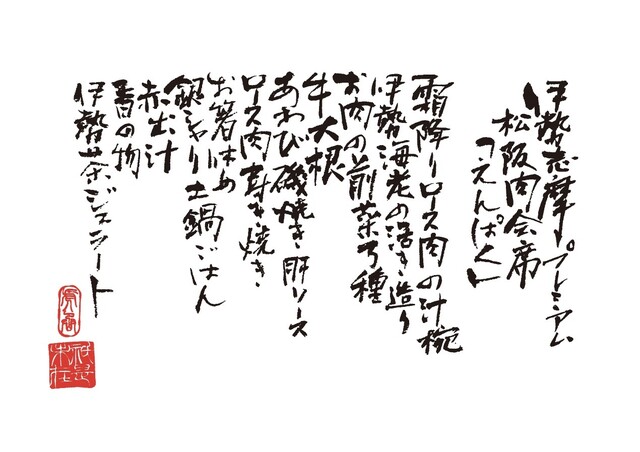 伊勢志摩プレミアム
松阪肉会席
「えんぱく」
霜降りロース肉の汁椀
伊勢海老の活き造り
お肉の前菜5種
牛大根
あわび磯焼き 肝ソース
ロース肉寿き焼き
お箸休め
銀しゃり土鍋ごはん
赤出汁
香の物
伊勢茶ジェラート